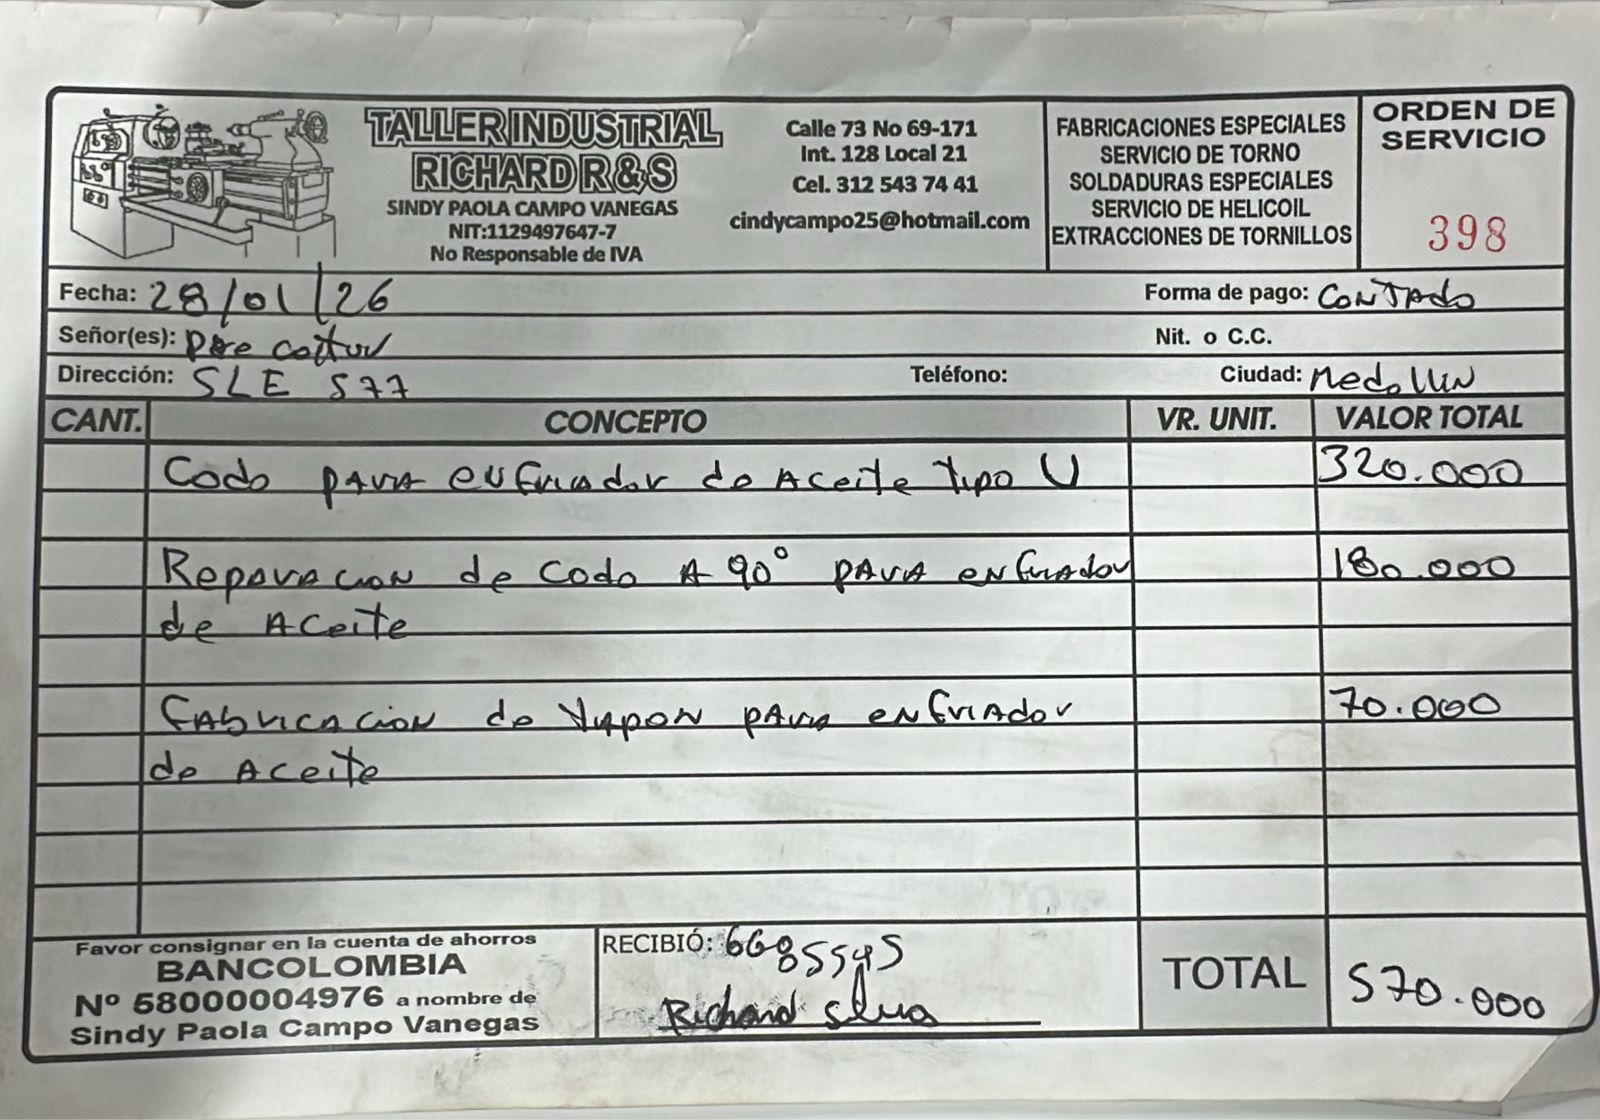 TALLER INDUSTRIAL
RICHARD R & S
SINDY PAOLA CAMPO VANEGAS
NIT:1129497647-7
No Responsable de IVA
Calle 73 No 69-171
Int. 128 Local 21
Cel. 312 543 74 41
cindycampo25@hotmail.com
FABRICACIONES ESPECIALES
SERVICIO DE TORNO
SOLDADURAS ESPECIALES
SERVICIO DE HELICOIL
EXTRACCIONES DE TORNILLOS
ORDEN DE
SERVICIO
398
Fecha: 28/01/26 Forma de pago: CONTAdo
Señor(es): Nit. o C.C.
Dirección: SLE 577 Teléfono: Ciudad: Medellin
CANT. CONCEPTO VR. UNIT. VALOR TOTAL
Codo para enfriador de Aceite tipo U 320.000
Reparacion de codo A 90° para enfriador 180.000
de Aceite
Fabricacion de tapon para enfriador 70.000
de Aceite
Favor consignar en la cuenta de ahorros
BANCOLOMBIA
Nº 58000004976 a nombre de
Sindy Paola Campo Vanegas
RECIBIÓ:
Richard Silva
TOTAL 570.000